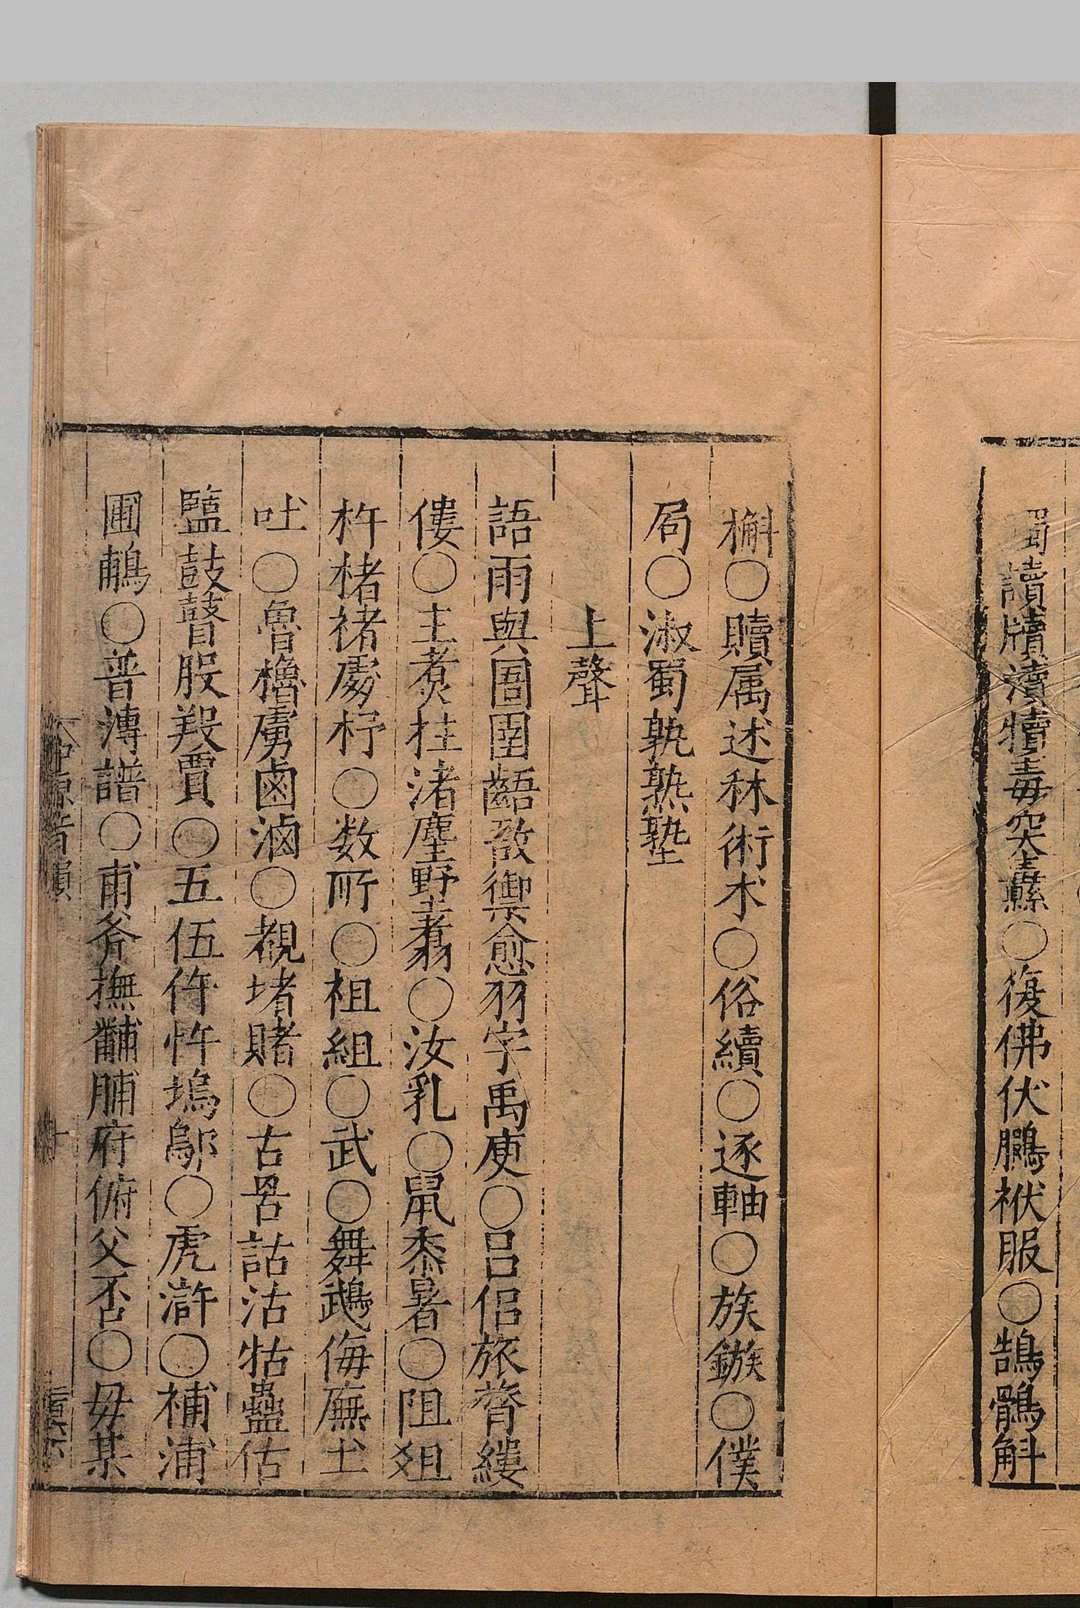 讀牘瀆犢毒突纛○復佛伏鵩袱服○鵠鶻斛
槲○贖属述秫術术○俗續○逐軸○族鏃○僕
局○淑蜀孰熟塾
上聲
語雨與圄圉齬敔禦愈羽宇禹庾○呂侣旅膂縷
僂○主煮柱渚麈墅翥○汝乳○鼠黍暑○阻俎
杵楮褚處杼○数所○祖組○武○舞鵡侮廡土
吐○魯櫓虜鹵滷○覩堵賭○古罟詁沽牯蠱估
盬鼓瞽股羖賈○五伍仵忤塢鄔○虎滸○補浦
圃鯆○普溥譜○甫斧撫黼脯府俯父否○毋某